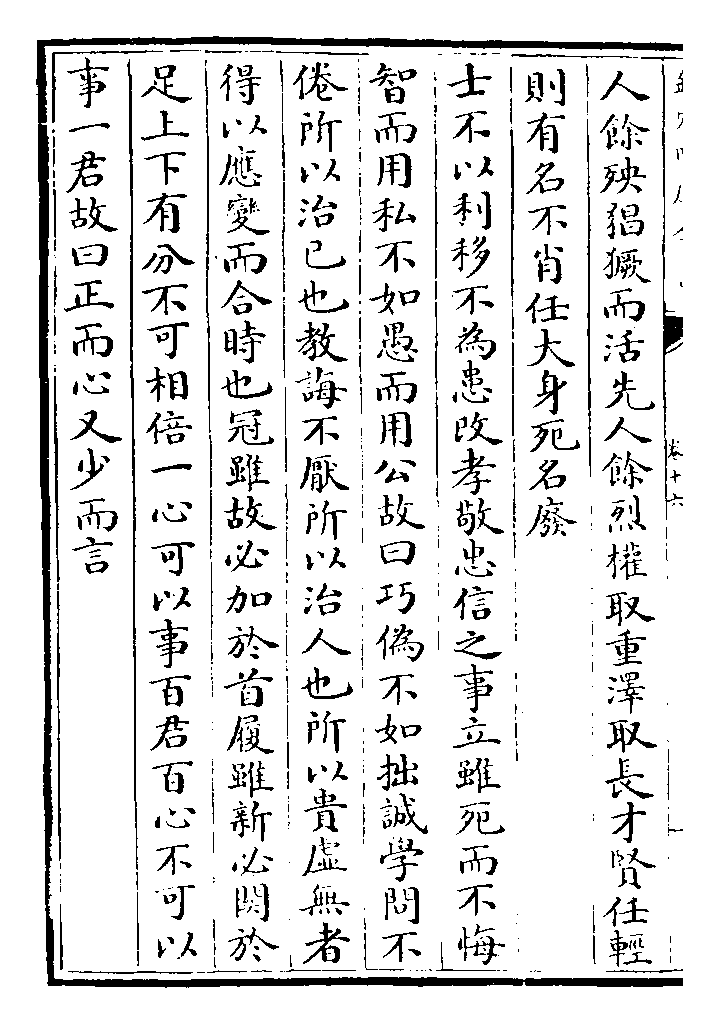 卷十六
人餘殃猖獗而活先人餘烈權取重澤取長才賢任輕
則有名不肖任大身死名廢
士不以利移不為患改孝敬忠信之事立雖死而不悔
智而用私不如愚而用公故曰巧偽不如拙誠學問不
倦所以治己也教誨不厭所以治人也所以貴虛無者
得以應變而合時也冠雖故必加於首履雖新必關於
足上下有分不可相倍一心可以事百君百心不可以
事一君故曰正而心又少而言